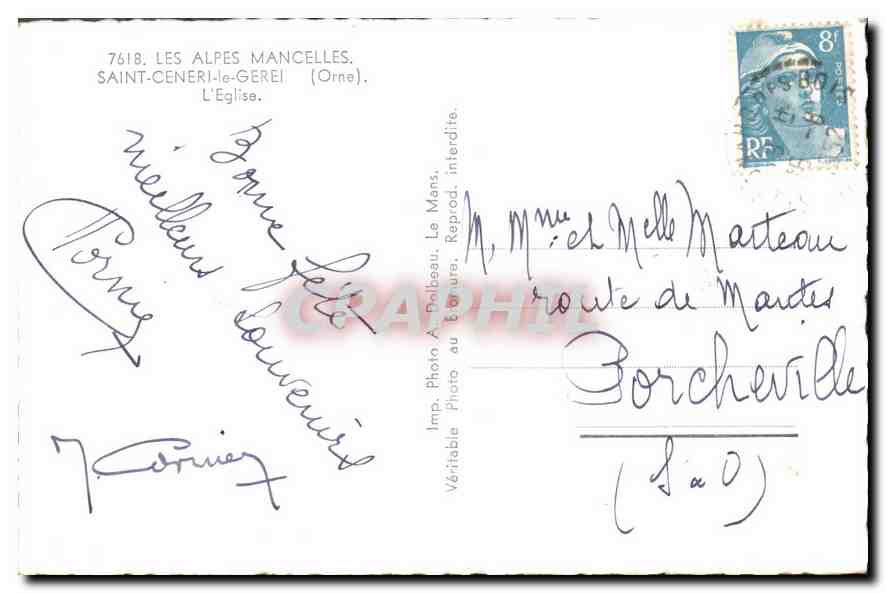 7618. LES ALPES MANCELLES.
SAINT-CENERI-le-GEREI (Orne).
L'Eglise.
Bonne fête
meilleurs Souvenirs
Cormier
J. Cormier
Imp. Photo A. Dolbeau. Le Mans.
Véritable Photo au Bromure. Reprod. interdite.
8f
RF
BOIS
M, Mme et Melle Marteau
route de Mantes
Porcheville
(S & O)
CPAPHIL